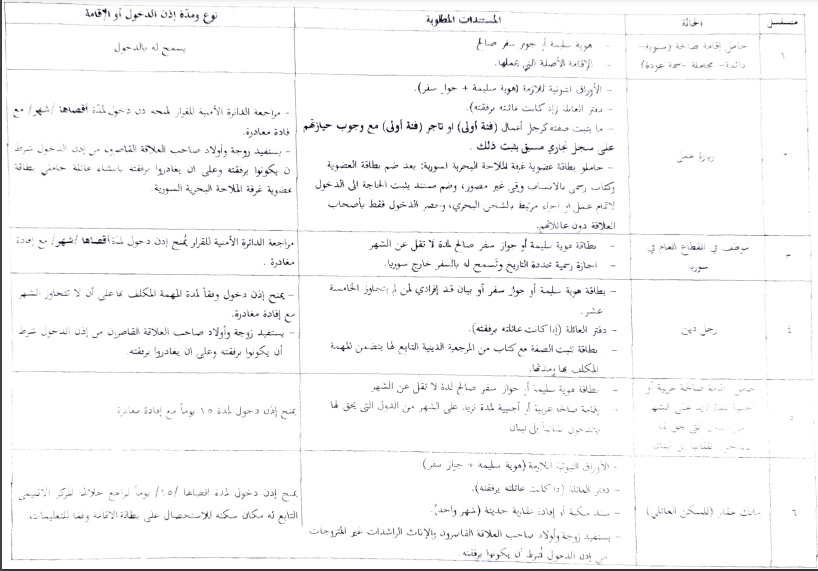 متسلسل
الحالة
المستندات المطلوبة
نوع ومدّة إذن الدخول أو الإقامة
١
حامل إقامة صالحة (سنوية-
دائمة- مجاملة -سمة عودة)
- هوية سليمة أو جواز سفر صالح
- الإقامة الأصلة التي يحملها.
يسمح له بالدخول
زيارة عمل
- الأوراق الثبوتية اللازمة (هوية سليمة + جواز سفر).
- دفتر العائلة (إذا كانت عائلته برفقته).
- ما يثبت صفته كرجل أعمال (فئة أولى) او تاجر (فئة أولى) مع وجوب حيازتهم
على سجل تجاري مسبق يثبت ذلك .
- حاملو بطاقة عضوية غرفة الملاحة البحرية السورية: بعد ضم بطاقة العضوية
وكتاب رسمي بالانتساب وقي غير مصور، وضم مستند يثبت الحاجة الى الدخول
لاتمام عمل او اجراء مرتبط بالشحن البحري، وحصر الدخول فقط بأصحاب
العلاقة دون عائلاتهم.
- مراجعة الدائرة الأمنية للقرار لمنحه اذن دخول لمدّة أقصاها /شهر/ مع
فادة مغادرة.
- يستفيد زوجة وأولاد صاحب العلاقة القاصرون من إذن الدخول شرط
ن يكونوا برفقته وعلى ان يغادروا برفقته باستثناء عائلة حاملي بطاقة
عضوية غرفة الملاحة البحرية السورية.
٣
موظف في القطاع العام في
سوريا
- بطاقة هوية سليمة أو جواز سفر صالح لمدة لا تقل عن الشهر
- اجازة رسمية محددة التاريخ وتسمح له بالسفر خارج سوريا.
مراجعة الدائرة الأمنية للقرار يُمنح إذن دخول لمدة أقصاها /شهر/ مع إفادة
مغادرة .
٤
رجل دين
- بطاقة هوية سليمة أو جواز سفر أو بيان قيد إفرادي لمن لم يتجاوز الخامسة
عشر.
- دفتر العائلة (إذا كانت عائلته برفقته).
- بطاقة تثبت الصفة مع كتاب من المرجعية الدينية التابع لها يتضمن المهمة
المكلف بها ومدتها.
- يمنح إذن دخول وفقاً لمدة المهمة المكلف بها على أن لا تتجاوز الشهر
مع إفادة مغادرة.
- يستفيد زوجة وأولاد صاحب العلاقة القاصرون من إذن الدخول شرط
أن يكونوا برفقته وعلى ان يغادروا برفقته.
٥
حامل إقامة صالحة عربية أو
أجنبية لمدة تزيد عن الشهر
- بطاقة هوية سليمة أو جواز سفر صالح لمدة لا تقل عن الشهر
- إقامة صالحة عربية أو أجنبية لمدة تزيد على الشهر من الدول التي يحق لها
بالدخول تلقائياً إلى لبنان
يمنح إذن دخول لمدة ١٥ يوماً مع إفادة مغادرة
٦
مالك عقار (للمسكن العائلي)
- الأوراق الثبوتية اللازمة (هوية سليمة + جواز سفر)
- دفتر العائلة (إذا كانت عائلته برفقته).
- سند ملكية أو إفادة عقارية حديثة (شهر واحد).
- يستفيد زوجة وأولاد صاحب العلاقة القاصرون والإناث الراشدات غير المتزوجات
من إذن الدخول شرط أن يكونوا برفقته.
يمنح إذن دخول لمدة اقصاها /١٥/ يوماً ليراجع خلالها المركز الاقليمي
التابع له مكان سكنه للاستحصال على بطاقة الاقامة وفقا للتعليمات.